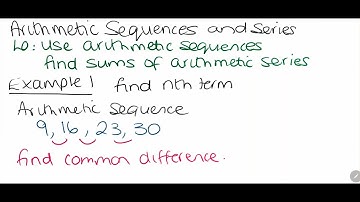 Arithmetic Sequences and Series
LO: Use arithmetic sequences
find sums of arithmetic series
Example 1 find nth term
Arithmetic Sequence
9, 16, 23, 30
find common difference.